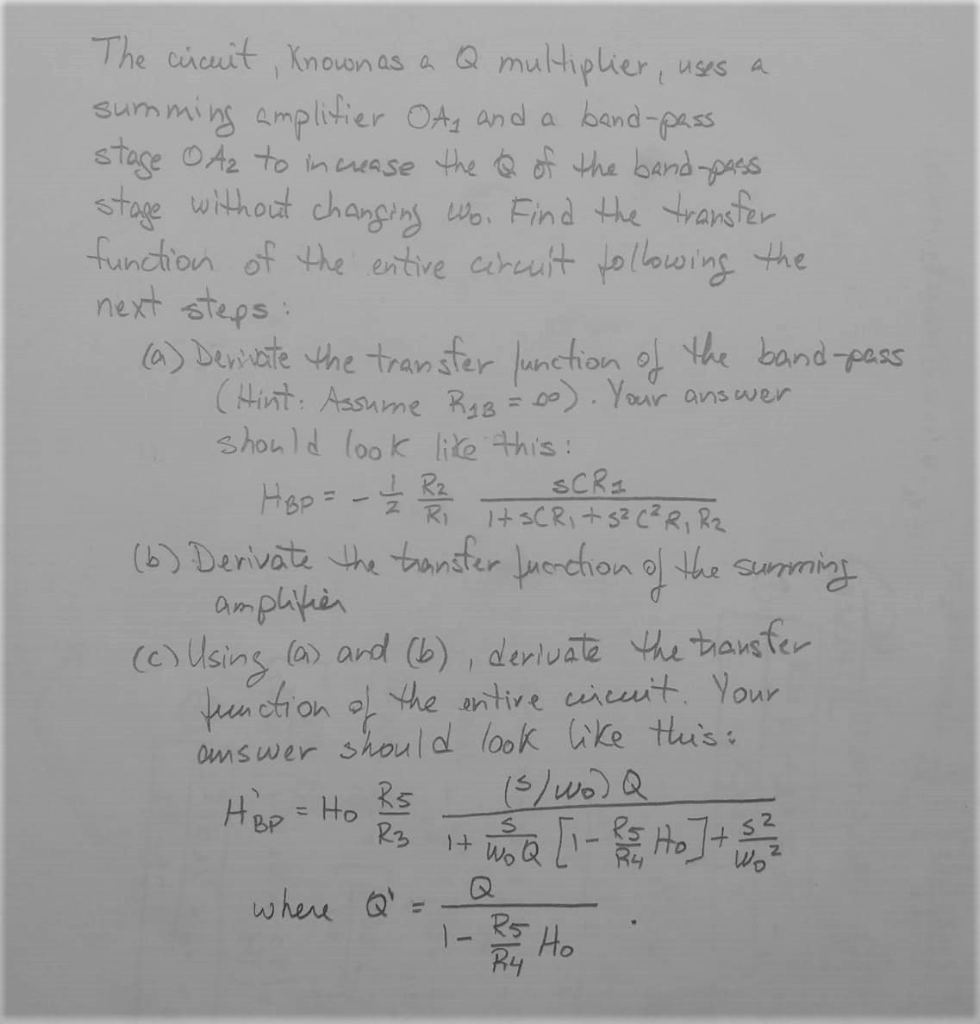 The circuit, Known as a Q multiplier, uses a
summing amplifier OA1 and a band-pass
stage OA2 to increase the Q of the band-pass
stage without changing ω0. Find the transfer
function of the entire circuit following the
next steps:
(a) Derivate the transfer function of the band-pass
(Hint: Assume R1B = ∞). Your answer
should look like this:
HBP = - 1/2 R2/R1 sCR1/(1 + sCR1 + s² C² R1 R2)
(b) Derivate the transfer function of the summing
amplifier
(c) Using (a) and (b), derivate the transfer
function of the entire circuit. Your
answer should look like this:
H'BP = H0 R5/R3 (s/ω0) Q/(1 + s/(ω0 Q) [1 - R5/R4 H0] + s²/ω0²)
where Q' = Q/(1 - R5/R4 H0) .